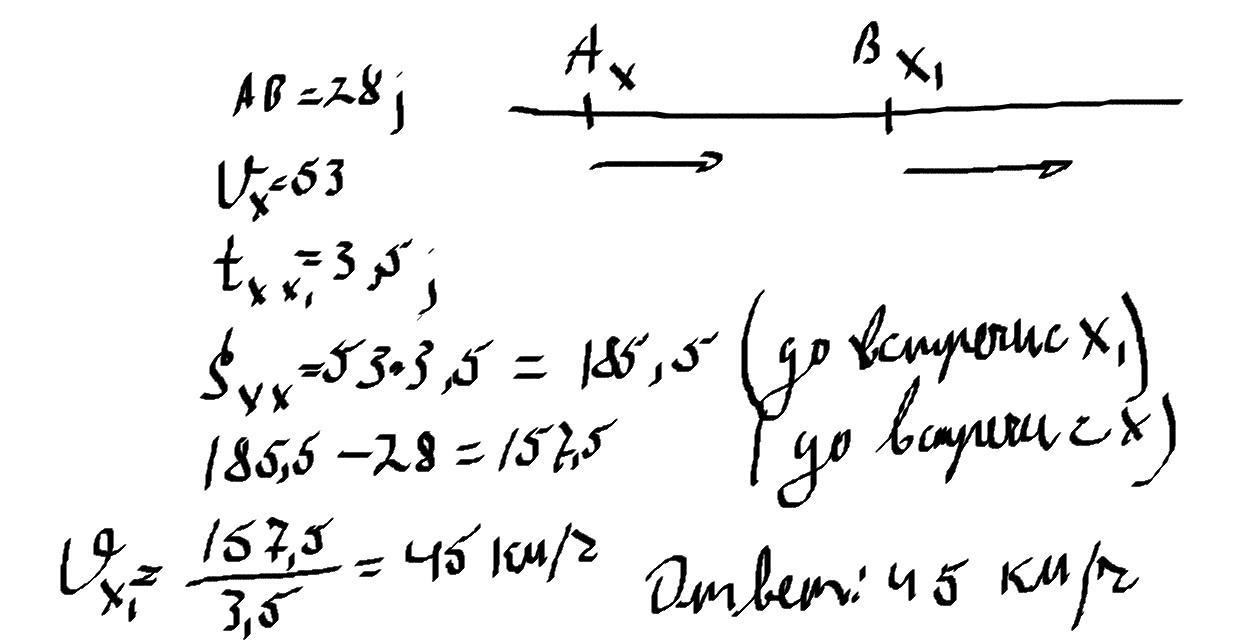 A x B x₁
AB = 28;
Vx = 53
txx₁ = 3,5;
Sxx = 53·3,5 = 185,5 (до встречис x₁)
185,5 – 28 = 157,5 (до встречи с x)
Vx₁ = 157,5 / 3,5 = 45 км/г Ответ: 45 км/г